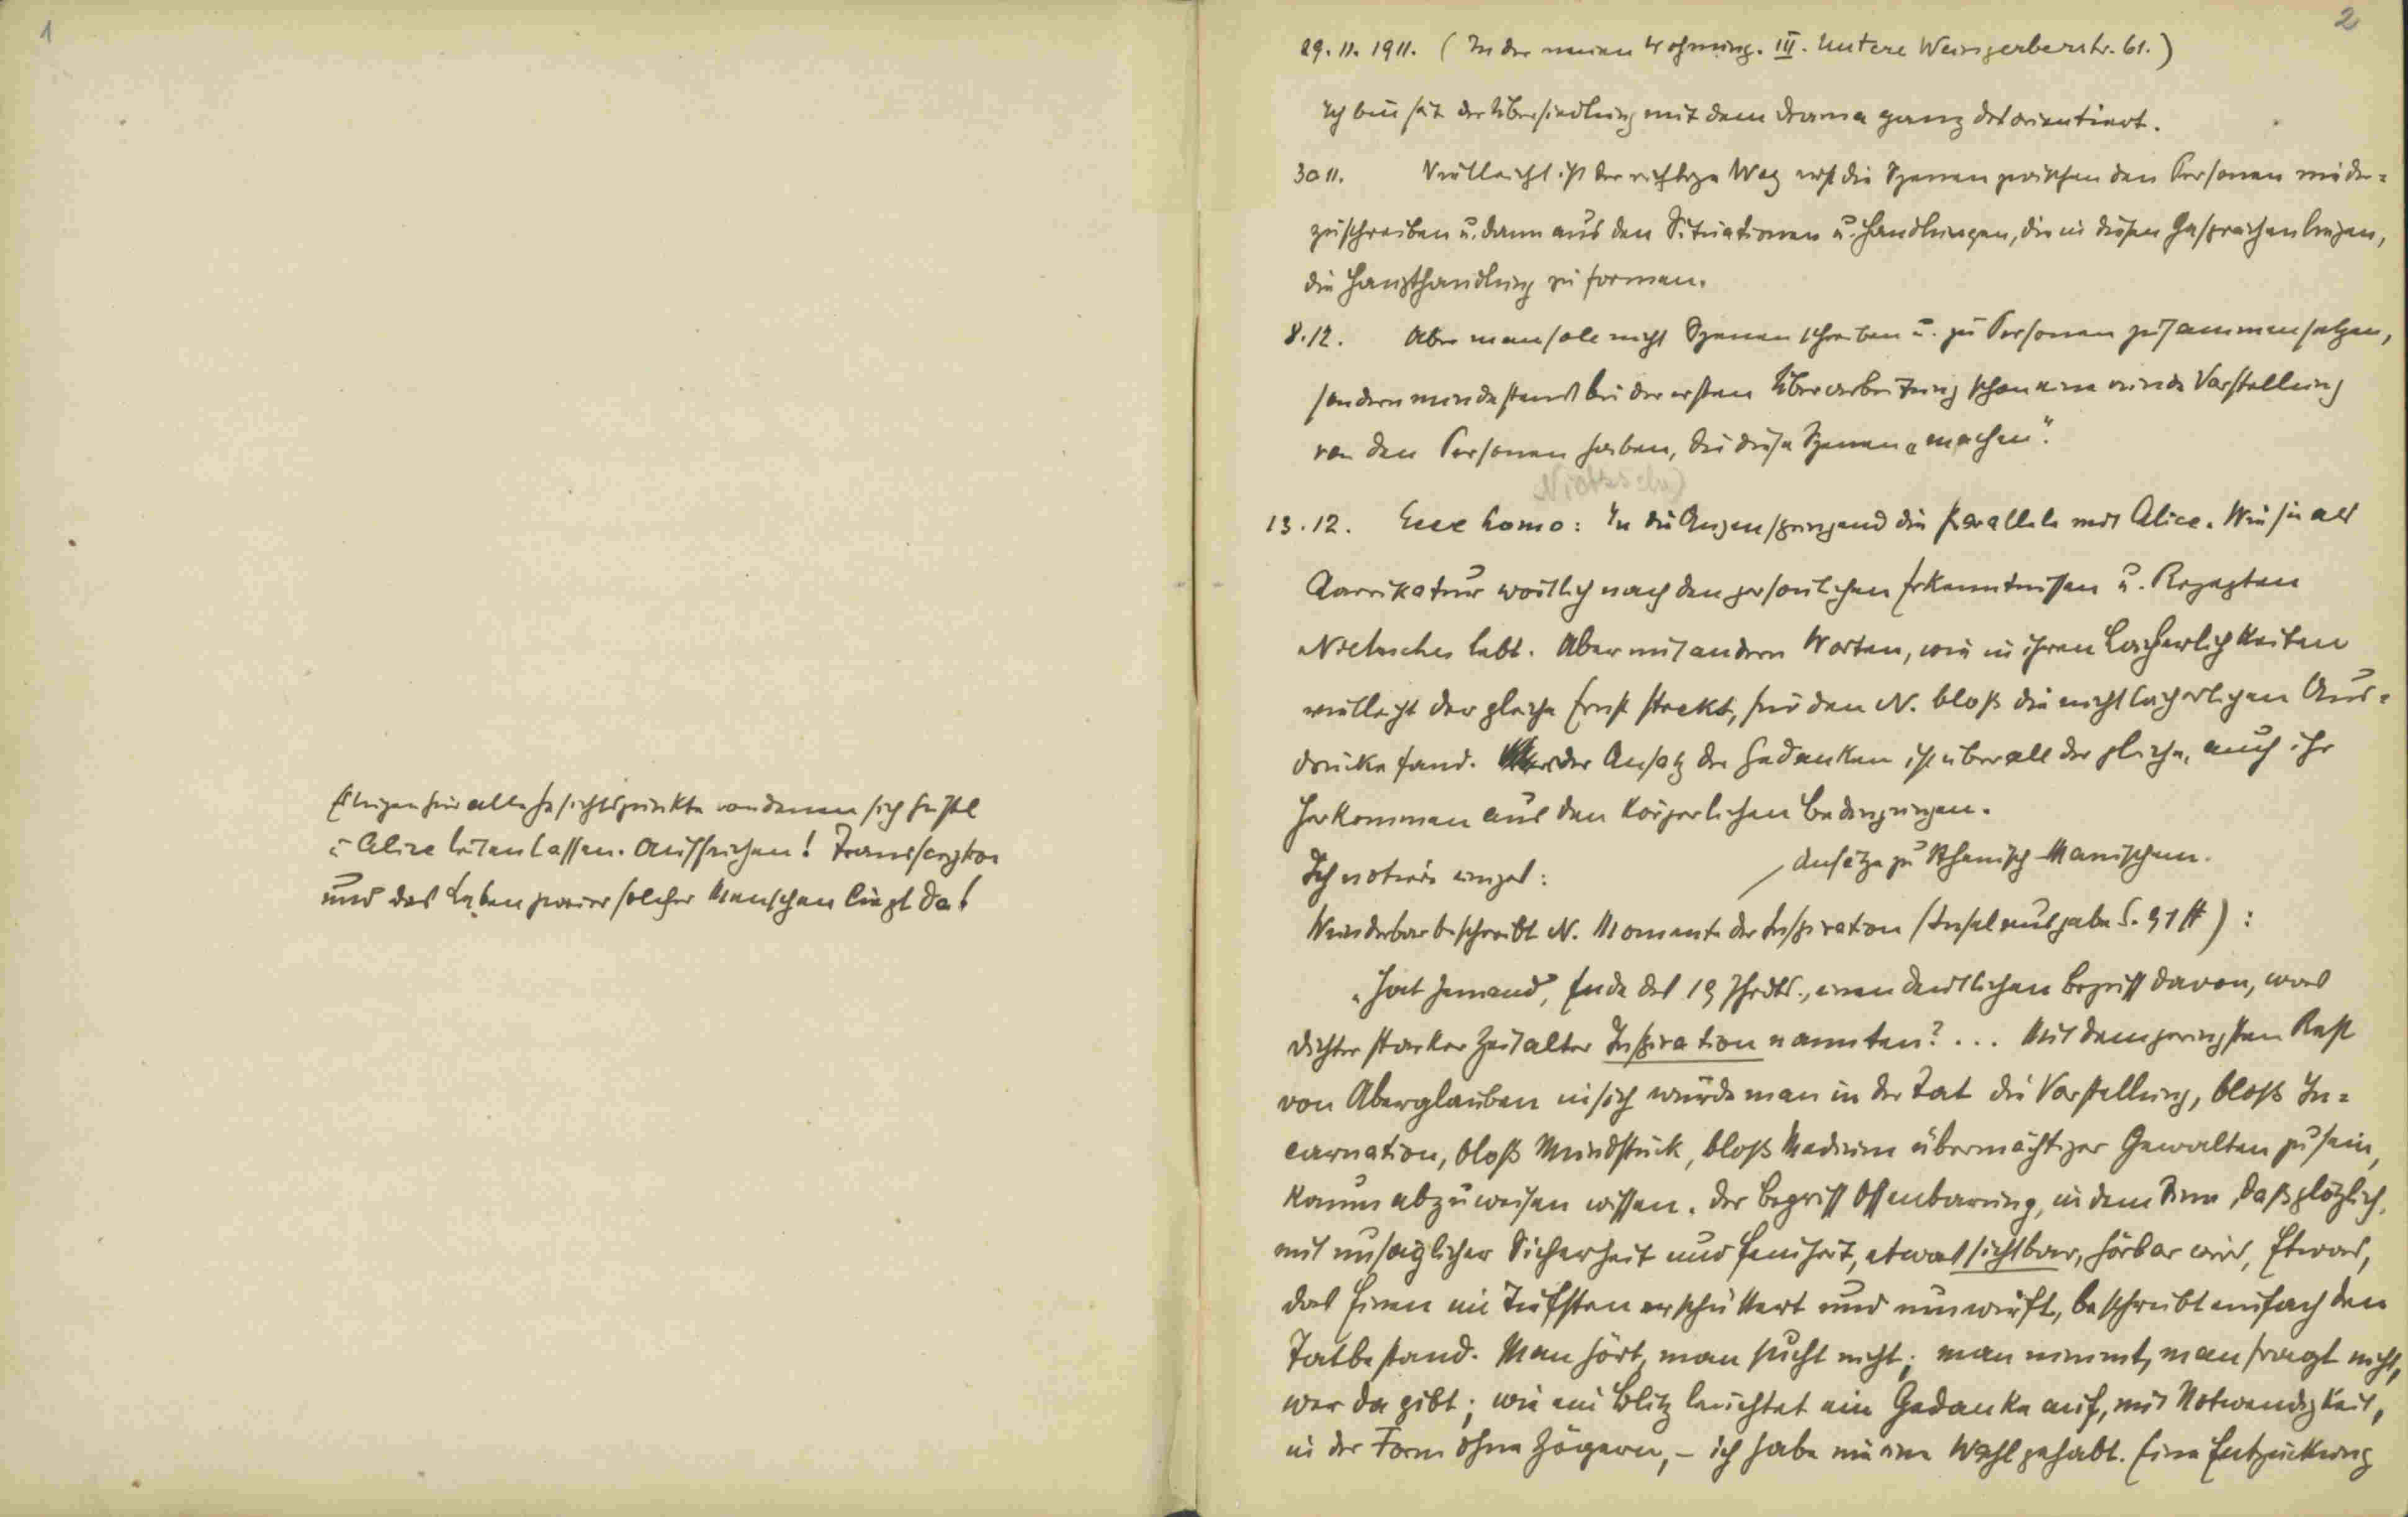 1
Es liegen hier alle Gesichtspunkte von denen sich Gustl
u Alice leiten lassen. Aufsuchen!
und das Leben zweier solcher Menschen liegt da!
2
29. 11. 1911. (In der neuen Wohnung. III. Untere Weissgerberstr. 61.)
Ich bin seit der Übersiedlung mit dem Drama ganz desorientiert.
30 11. Vielleicht ist der richtige Weg erst die Szenen zwischen den Personen nieder=
zuschreiben u. dann aus den Situationen u. Handlungen, die in diesen Gesprächen liegen,
die Haupthandlung zu formen.
8. 12. Aber man soll nicht Szenen schreiben u. zu Personen zusammensetzen,
sondern mindestens bei der ersten Überarbeitung schon eine runde Vorstellung
von den Personen haben, die diese Szenen „machen".
Nietzsche)
13. 12. Ecce homo: In die Augen springend die Parallele mit Alice. Wie sie als
Carrikatur wörtlich nach den persönlichen Erkenntnissen u. Rezepten
Nietzsches lebt. Aber mit andern Worten, wie in ihren Lächerlichkeiten
vielleicht der gleiche Ernst steckt, für den N. bloß die nicht lächerlichen Aus=
drücke fand. der Ansatz der Gedanken ist überall der gleiche, auch ihr
Herkommen aus den körperlichen Bedingungen.
Ich notiere einzel:
Ansätze zu Sthenisch-Manischem.
Wunderbar beschreibt N. Momente der Inspiration (Inselausgabe S. 91 ff) :
„Hat Jemand, Ende des 19 Jhrdts., einen deutlichen Begriff davon, was
Dichter starker Zeitalter Inspiration nannten? ... Mit dem geringsten Rest
von Aberglauben in sich würde man in der Tat die Vorstellung, bloß In=
carnation, bloß Mundstück, bloß Medium übermächtiger Gewalten zu sein,
kaum abzuweisen wissen. Der Begriff Offenbarung, in dem Sinn, daß plötzlich,
mit unsäglicher Sicherheit und Feinheit, etwas sichtbar, hörbar wird, Etwas,
das Einen im Tiefsten erschüttert und umwirft, beschreibt einfach den
Tatbestand. Man hört, man sucht nicht; man nimmt, man fragt nicht,
wer da gibt; wie ein Blitz leuchtet ein Gedanke auf, mit Notwendigkeit,
in der Form ohne Zögern, – ich habe nie eine Wahl gehabt. Eine Entzückung